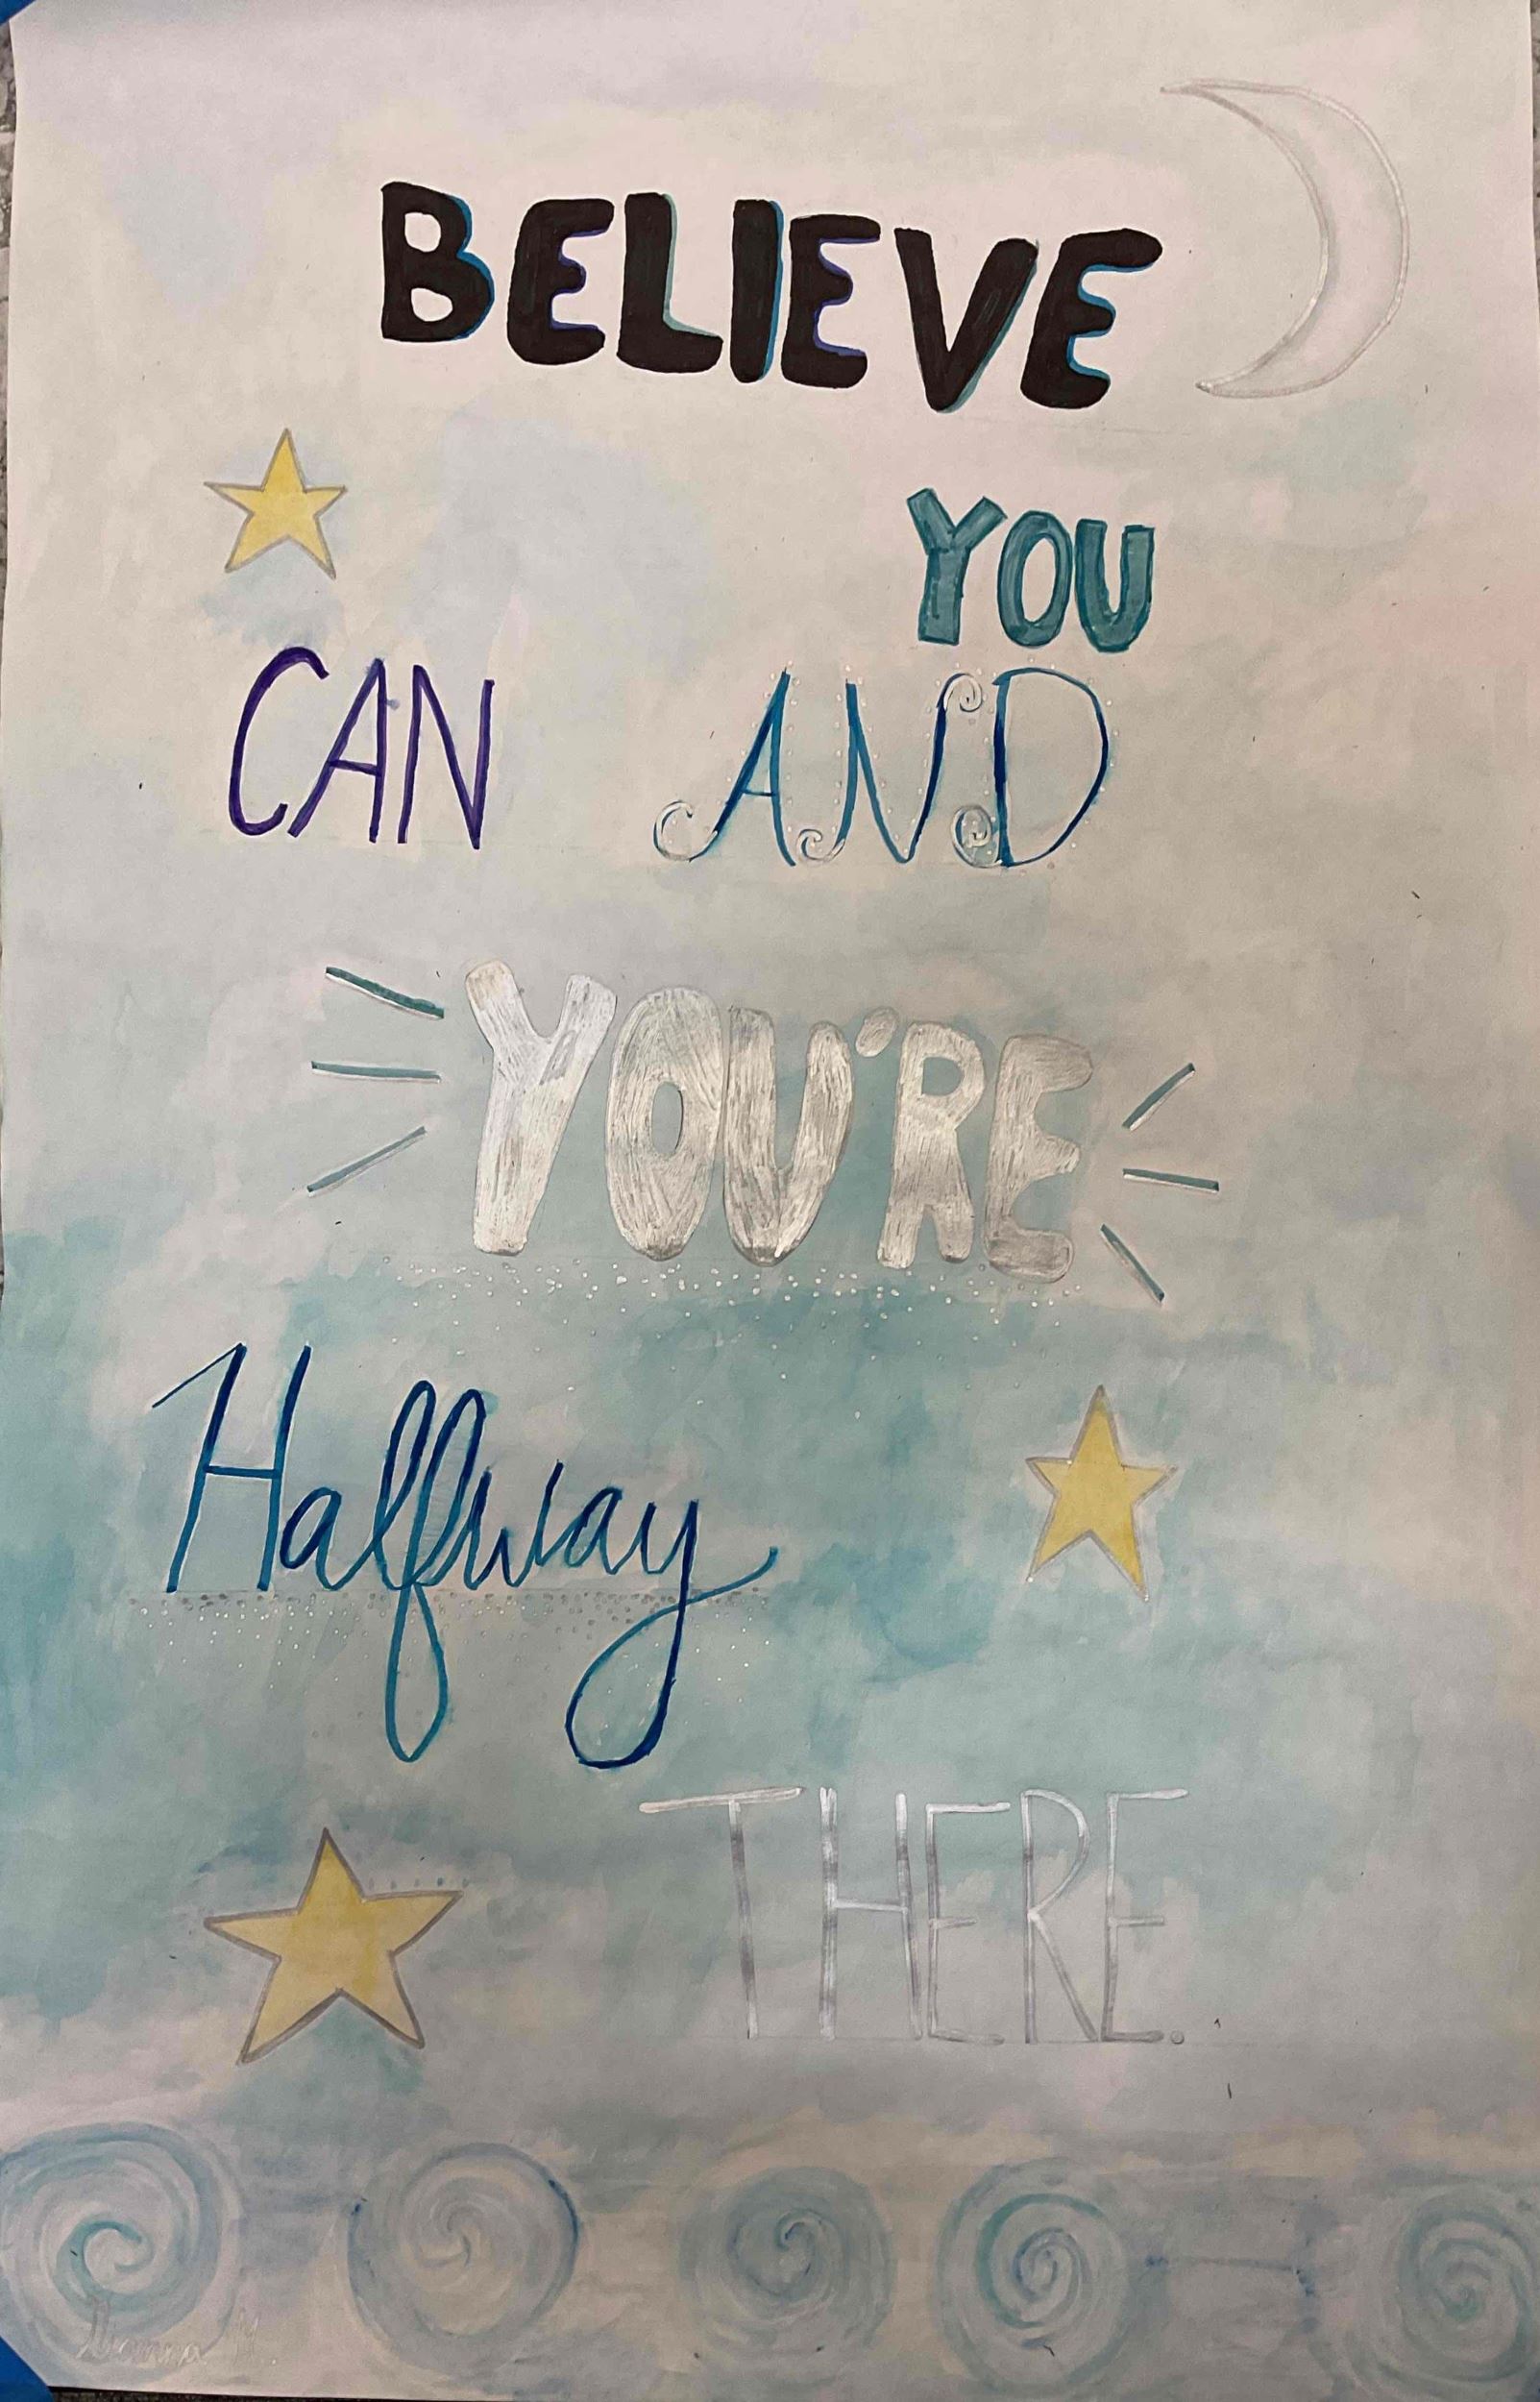 BELIEVE
YOU
CAN AND
YOU'RE
Halfway
THERE.